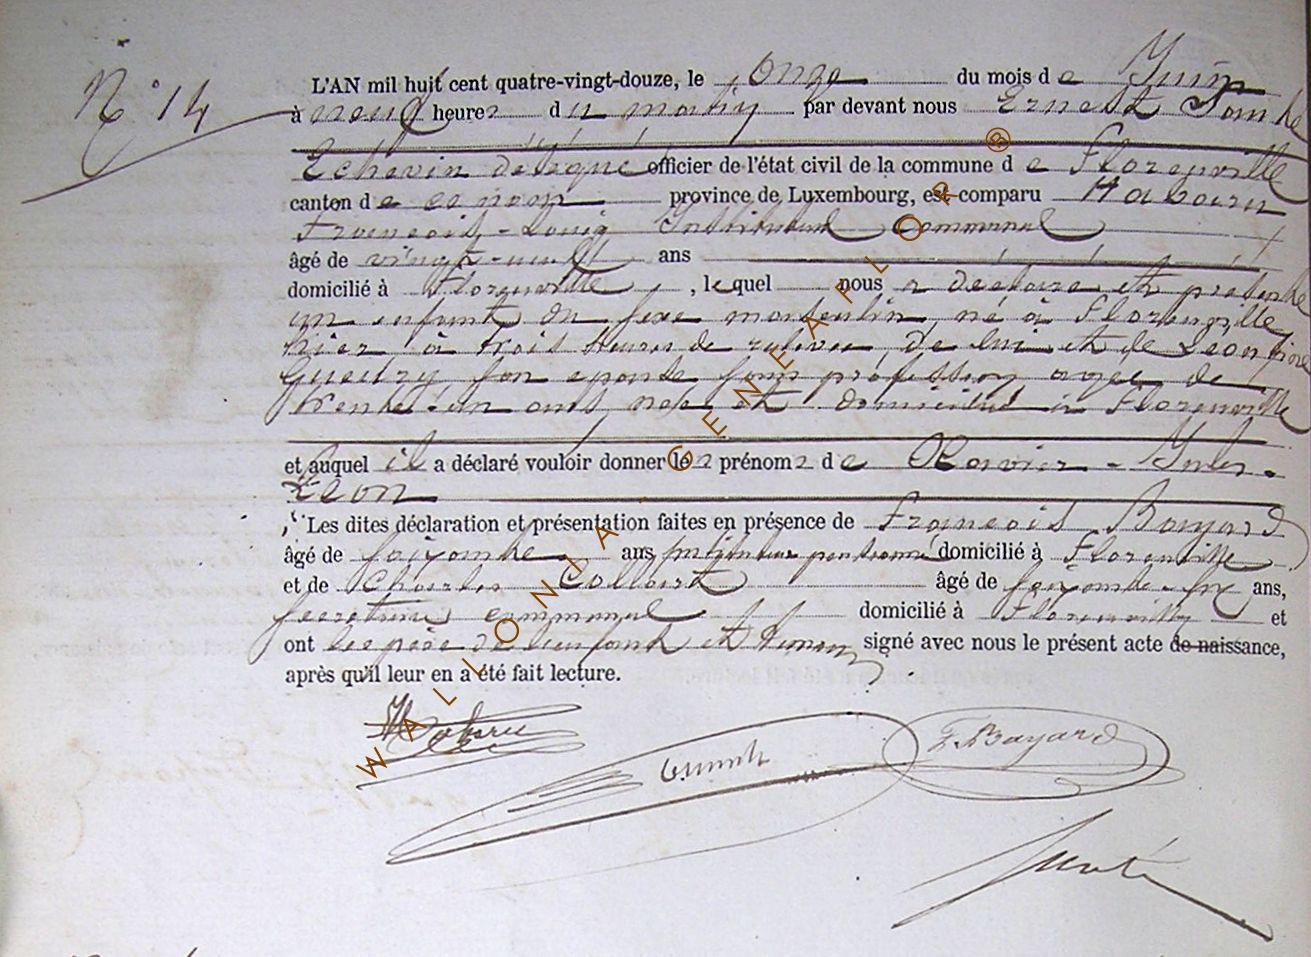 N° 14
L'AN mil huit cent quatre-vingt-douze, le onze du mois de Juin
à neuf heures du matin par devant nous Ernest
Echevin délégué officier de l'état civil de la commune de Florenville
canton de ce nom province de Luxembourg, est comparu
François-Louis Instituteur Communal
âgé de vingt-neuf ans
domicilié à Florenville, lequel nous a déclaré et présenté
un enfant du sexe masculin, né à Florenville
hier à trois heures de relevée, de lui et de Léontine
Gueury son épouse sans profession agée de
trente-un ans, née et domiciliée à Florenville
et auquel il a déclaré vouloir donner les prénoms de Xavier-Jules-
Léon
Les dites déclaration et présentation faites en présence de François Bayard
âgé de soixante ans instituteur pensionné domicilié à Florenville
et de Charles Collart âgé de soixante-six ans,
secrétaire communal domicilié à Florenville et
ont les père de l'enfant et témoins signé avec nous le présent acte de naissance,
après qu'il leur en a été fait lecture.
F. Bayard
WALLONIA-GENEAPLOR®